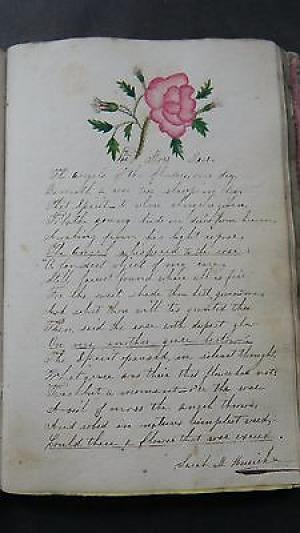 The Moss Rose.
The angel of the flowers, one day
Beneath a rose tree sleeping lay
That Spirit to whom charge is given
To bathe young buds in dews from heaven,
Awaking from his light repose
The angel whispered to the rose:
O fondest object of my care
Still fairest found where all is fair
For the sweet shade thou hast given me
Ask what thou wilt tis granted thee
Then said the rose with deepest glow
On me another grace bestow
The Spirit paused, in silent thought,
What grace was there that flower had not
Twas but a moment o'er the rose
A veil of moss the angel throws
And robed in natures simplest weed,
Could there a flower that rose exceed.
Sarah